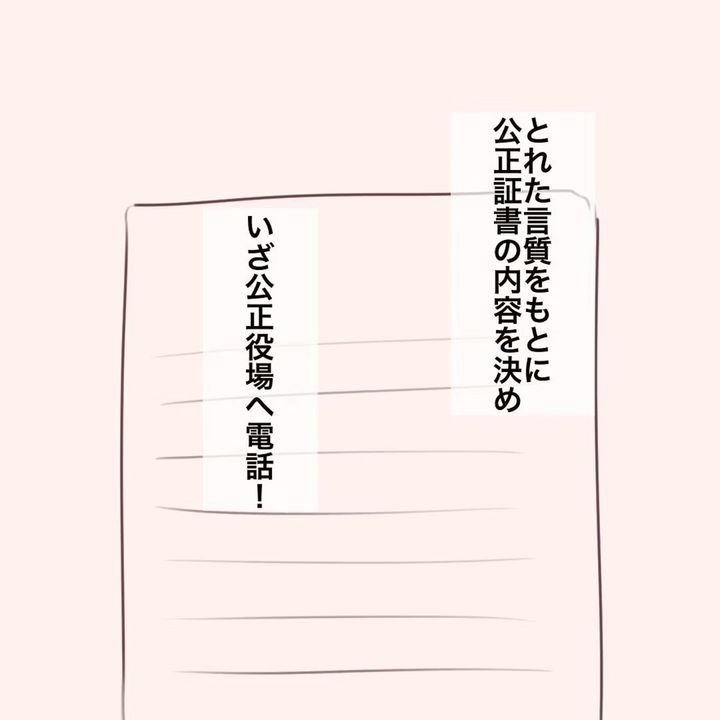 とれた言質をもとに
公正証書の内容を決め
いざ公正役場へ電話！